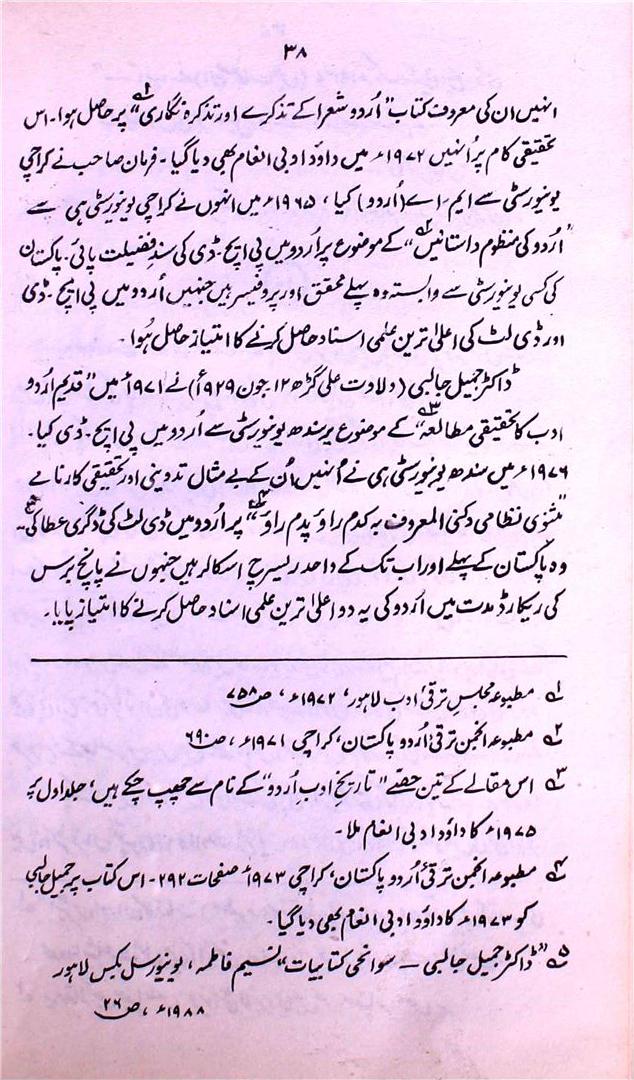 ۳۸
انہیں ان کی معروف کتاب "اُردو شعرا کے تذکرے اور تذکرہ نگاری"۱؎ پر حاصل ہوا۔ اس
تحقیقی کام پر اُنہیں ۱۹۷۲ء میں داؤد ادبی انعام بھی دیا گیا۔ فرمان صاحب نے کراچی
یونیورسٹی سے ایم۔اے (اُردو) کیا، ۱۹۶۵ء میں انہوں نے کراچی یونیورسٹی ہی سے
"اُردو کی منظوم داستانیں"۲؎ کے موضوع پر اُردو میں پی ایچ۔ڈی کی سندِ فضیلت پائی۔ پاکستان
کی کسی یونیورسٹی سے وابستہ وہ پہلے محقق اور پروفیسر ہیں جنہیں اُردو میں پی ایچ۔ڈی
اور ڈی لٹ کی اعلیٰ ترین علمی اسناد حاصل کرنے کا امتیاز حاصل ہُوا۔
ڈاکٹر جمیل جالبی (ولادت علی گڑھ ۱۲ جون ۱۹۲۹ء) نے ۱۹۷۱ء میں "قدیم اُردو
ادب کا تحقیقی مطالعہ"۳؎ کے موضوع پر سندھ یونیورسٹی سے اُردو میں پی ایچ۔ڈی کیا۔
۱۹۷۶ء میں سندھ یونیورسٹی ہی نے اُنہیں اُن کے بے مثال تدوینی اور تحقیقی کارنامے
"مثنوی نظامی دکنی المعروف بہ کدم راؤ پدم راؤ"۴؎ پر اُردو میں ڈی لٹ کی ڈگری عطا کی۵؎۔
وہ پاکستان کے پہلے اور اب تک کے واحد ریسرچ اسکالر ہیں جنہوں نے پانچ برس
کی ریکارڈ مدت میں اُردو کی یہ دو اعلیٰ ترین علمی اسناد حاصل کرنے کا امتیاز پایا۔
۱؎ مطبوعہ مجلسِ ترقیٔ ادب لاہور، ۱۹۷۲ء، ص ۷۵۸
۲؎ مطبوعہ انجمن ترقیٔ اُردو پاکستان، کراچی ۱۹۷۱ء، ص ۶۹۰
۳؎ اس مقالے کے تین حصّے "تاریخ ادبِ اُردو" کے نام سے چھپ چکے ہیں، جلد اوّل پر
۱۹۷۵ء کا داؤد ادبی انعام ملا۔
۴؎ مطبوعہ انجمن ترقیٔ اُردو پاکستان، کراچی ۱۹۷۳ء صفحات ۲۹۲۔ اس کتاب پر جمیل جالبی
کو ۱۹۷۳ء کا داؤد ادبی انعام بھی دیا گیا۔
۵؎ "ڈاکٹر جمیل جالبی ــ سوانحی کتابیات" نسیم فاطمہ، یونیورسل بکس لاہور
۱۹۸۸ء، ص ۲۶